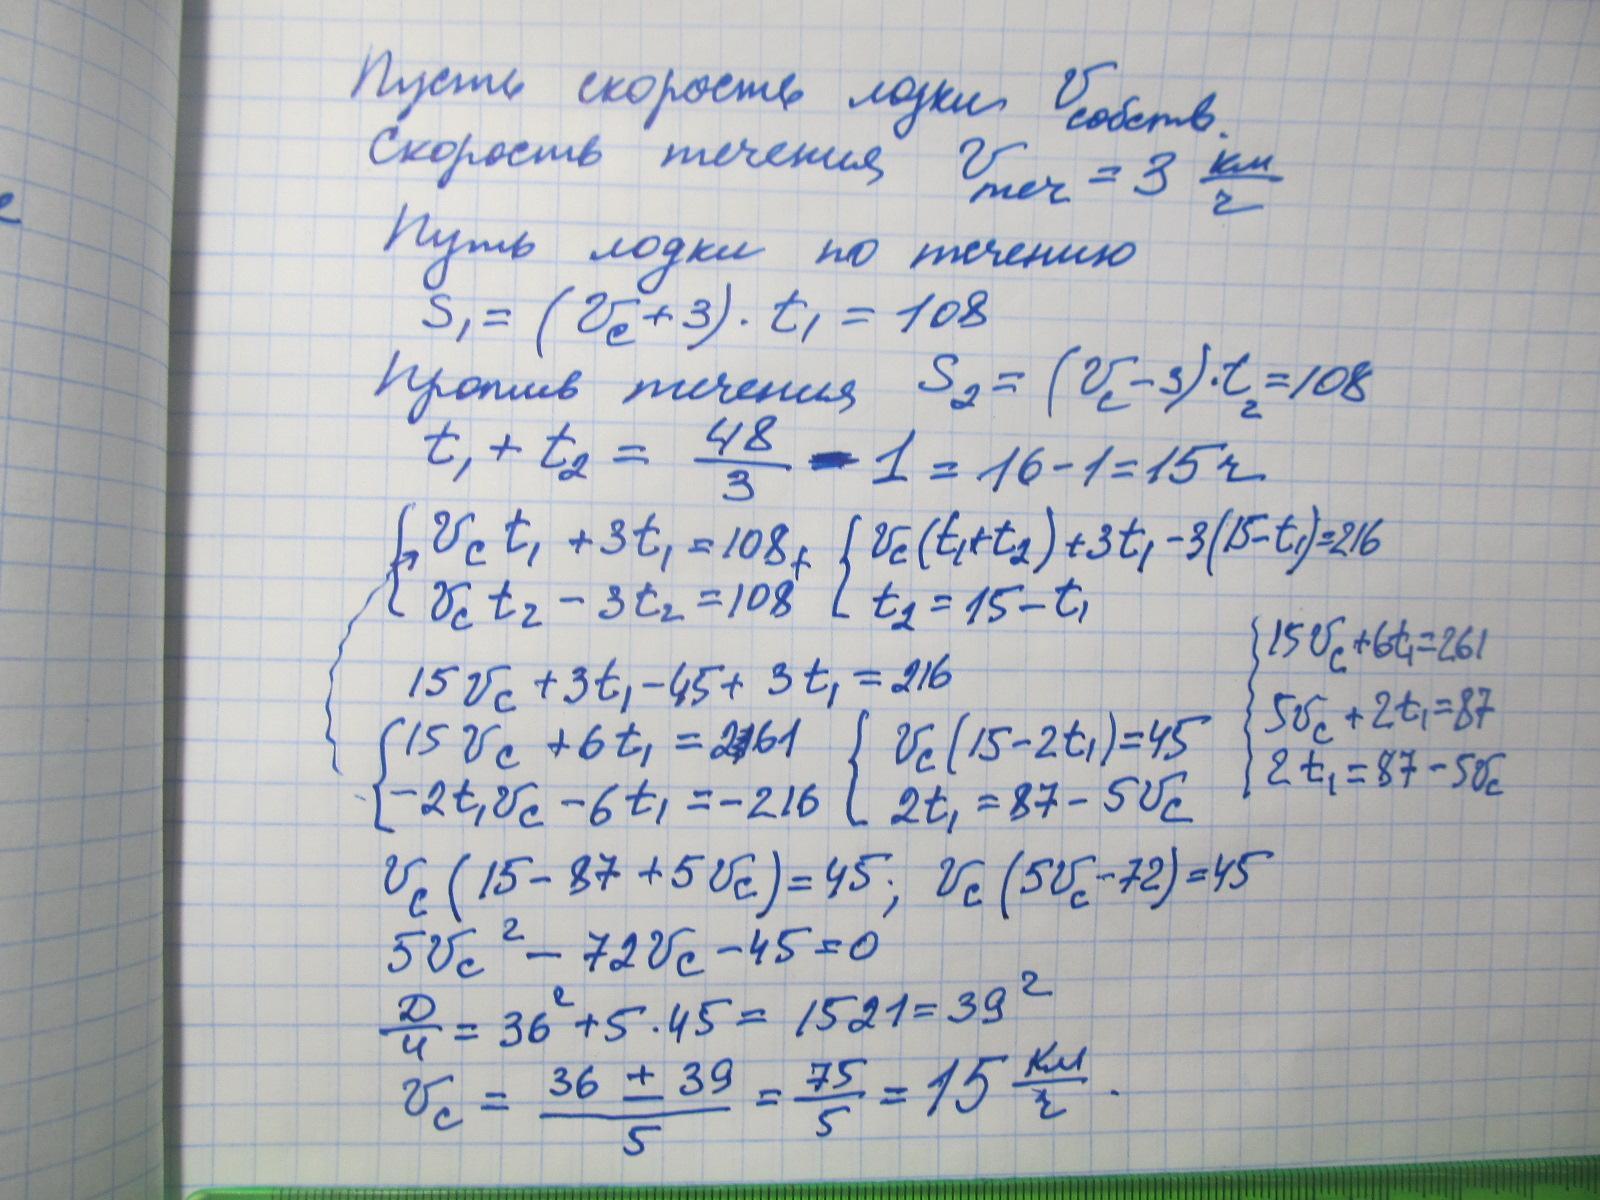 Пусть скорость лодки V собств.
Скорость течения V теч = 3 км/ч
Путь лодки по течению
S₁ = (Vc + 3) · t₁ = 108
Против течения S₂ = (Vc − 3) · t₂ = 108
t₁ + t₂ = 48/3 − 1 = 16 − 1 = 15 ч
{ Vc t₁ + 3t₁ = 108 + { Vc (t₁ + t₂) + 3t₁ − 3(15 − t₁) = 216
Vc t₂ − 3t₂ = 108 t₂ = 15 − t₁
15Vc + 3t₁ − 45 + 3t₁ = 216
{ 15Vc + 6t₁ = 261 { Vc (15 − 2t₁) = 45
−2t₁Vc − 6t₁ = −216 2t₁ = 87 − 5Vc
{ 15Vc + 6t₁ = 261
5Vc + 2t₁ = 87
2t₁ = 87 − 5Vc
Vc (15 − 87 + 5Vc) = 45; Vc (5Vc − 72) = 45
5Vc² − 72Vc − 45 = 0
Д/4 = 36² + 5 · 45 = 1521 = 39²
Vc = (36 ± 39)/5 = 75/5 = 15 км/ч.